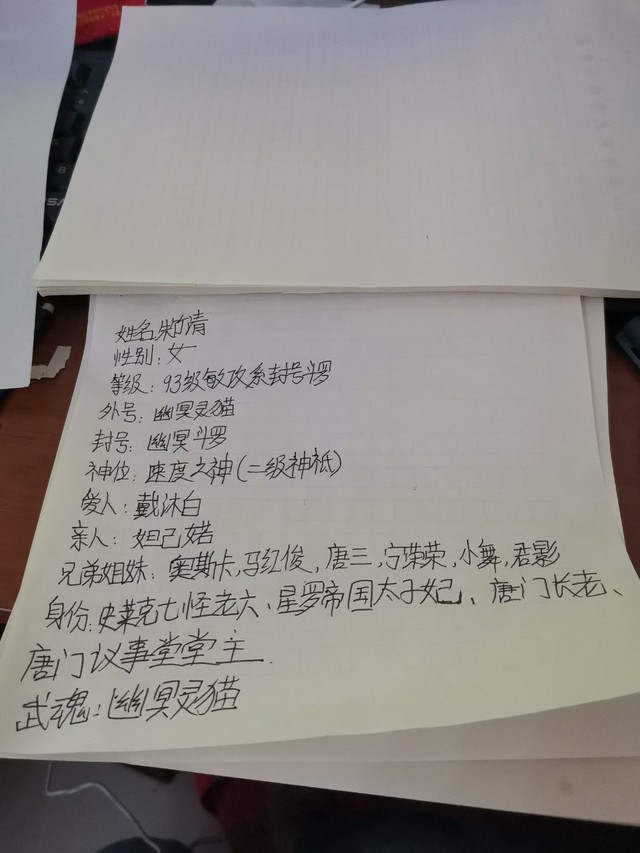 姓名:朱竹清
性别:女
等级:93级敏攻系封号斗罗
外号:幽冥灵猫
封号:幽冥斗罗
神位:速度之神(二级神祇)
爱人:戴沐白
亲人:妲己婼
兄弟姐妹:奥斯卡,马红俊,唐三,宁荣荣,小舞,君影
身份:史莱克七怪老六、星罗帝国太子妃、唐门长老、
唐门议事堂堂主
武魂:幽冥灵猫